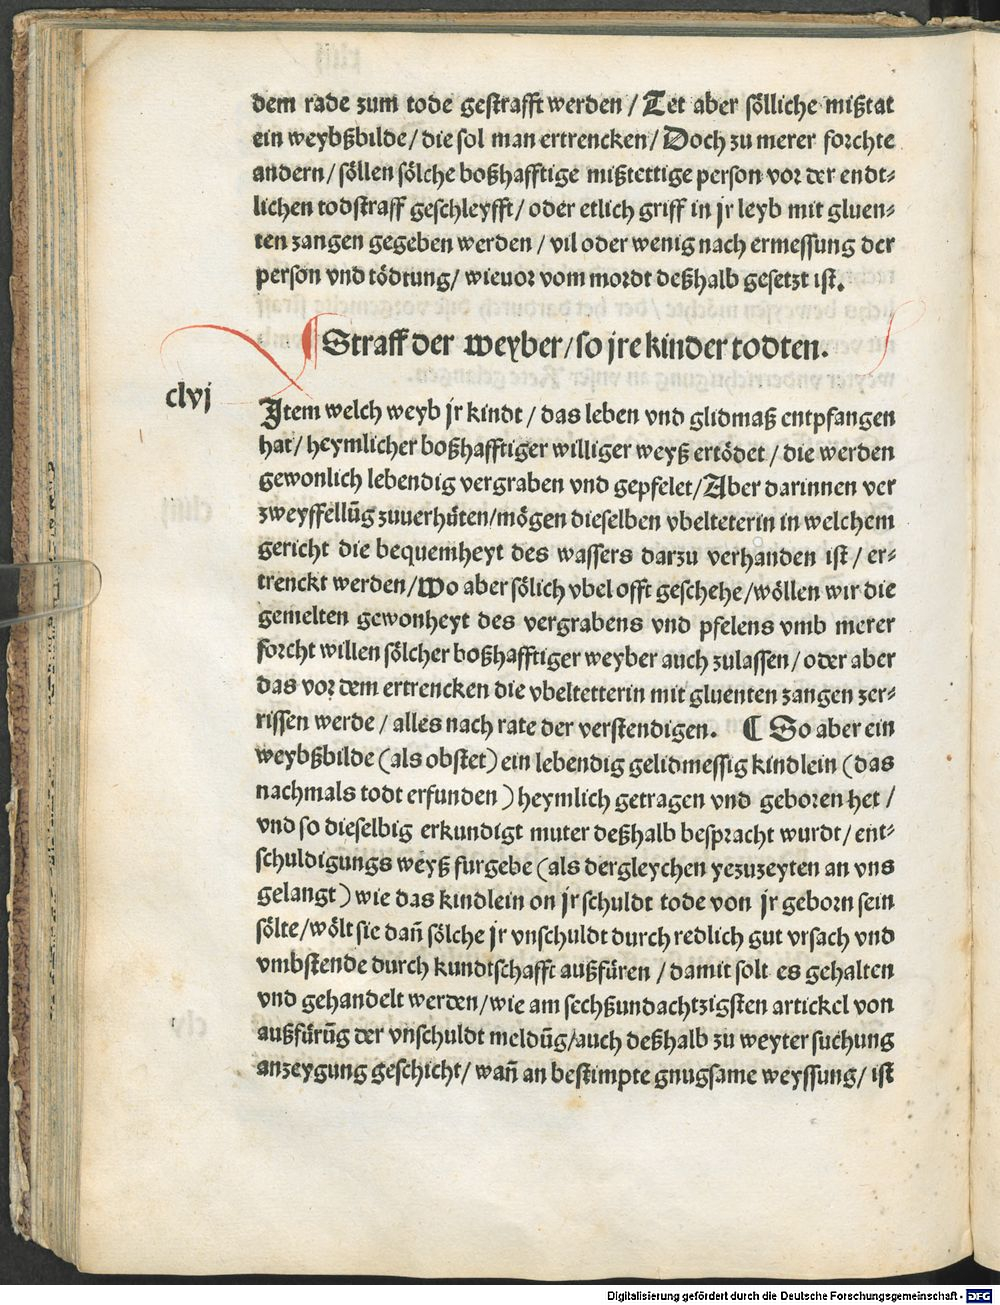 dem rade zum tode gestrafft werden / Tet aber sölliche mißtat
ein weybßbilde / die sol man ertrencken / Doch zu merer forchte
andern / söllen sölche boßhafftige mißtettige person vor der endt⸗
lichen todstraff geschleyfft / oder etlich griff in jr leyb mit gluen⸗
ten zangen gegeben werden / vil oder wenig nach ermessung der
person vnd tödtung / wieuor vom mordt deßhalb gesetzt ist.
¶ Straff der weyber / so jre kinder todten.
clvj
Jtem welch weyb jr kindt / das leben vnd glidmaß entpfangen
hat / heymlicher boßhafftiger williger weyß ertödet / die werden
gewonlich lebendig vergraben vnd gepfelet / Aber darinnen ver
zweyffellūg zuuerhüten / mögen dieselben vbelteterin in welchem
gericht die bequemheyt des wassers darzu verhanden ist / er⸗
trenckt werden / Wo aber sölich vbel offt geschehe / wöllen wir die
gemelten gewonheyt des vergrabens vnd pfelens vmb merer
forcht willen sölcher boßhafftiger weyber auch zulassen / oder aber
das vor dem ertrencken die vbeltetterin mit gluenten zangen zer⸗
rissen werde / alles nach rate der verstendigen. ¶ So aber ein
weybßbilde (als obstet) ein lebendig gelidmessig kindlein (das
nachmals todt erfunden) heymlich getragen vnd geboren het /
vnd so dieselbig erkundigt muter deßhalb bespracht wurdt / ent⸗
schuldigungs weyß furgebe (als dergleychen yezuzeyten an vns
gelangt) wie das kindlein on jr schuldt tode von jr geborn sein
sölte / wölt sie dañ sölche jr vnschuldt durch redlich gut vrsach vnd
vmbstende durch kundtschafft außfüren / damit solt es gehalten
vnd gehandelt werden / wie am sechßundachtzigsten artickel von
außfürūg der vnschuldt meldūg / auch deßhalb zu weyter suchung
anzeygung geschicht / wañ an bestimpte gnugsame weyssung / ist
Digitalisierung gefördert durch die Deutsche Forschungsgemeinschaft - DFG